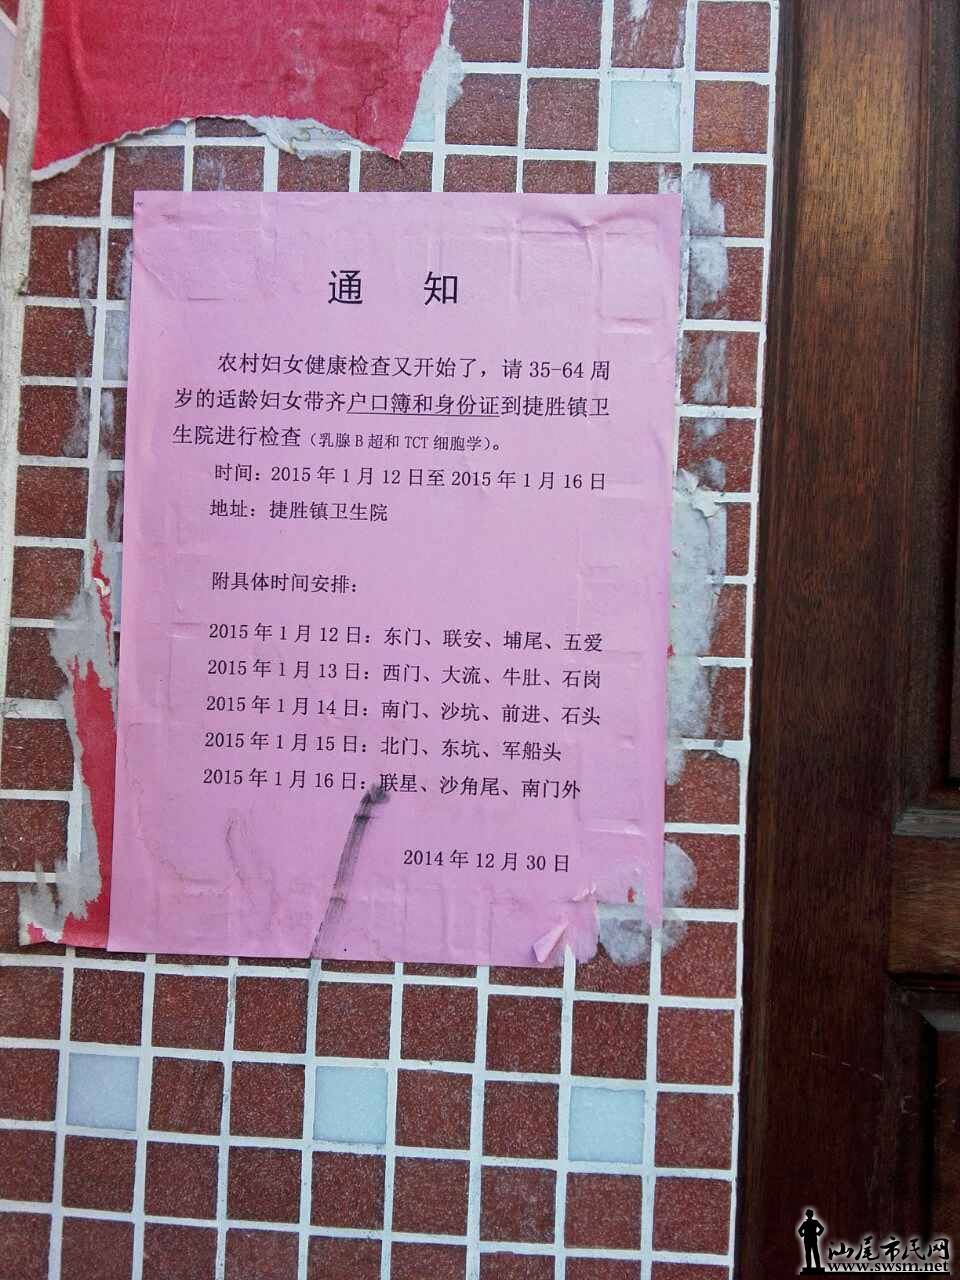 通 知
农村妇女健康检查又开始了，请 35-64 周
岁的适龄妇女带齐户口簿和身份证到捷胜镇卫
生院进行检查（乳腺 B 超和 TCT 细胞学）。
时间：2015 年 1 月 12 日至 2015 年 1 月 16 日
地址：捷胜镇卫生院
附具体时间安排：
2015 年 1 月 12 日：东门、联安、埔尾、五爱
2015 年 1 月 13 日：西门、大流、牛肚、石岗
2015 年 1 月 14 日：南门、沙坑、前进、石头
2015 年 1 月 15 日：北门、东坑、军船头
2015 年 1 月 16 日：联星、沙角尾、南门外
2014 年 12 月 30 日
汕尾市民网
www.swsm.net